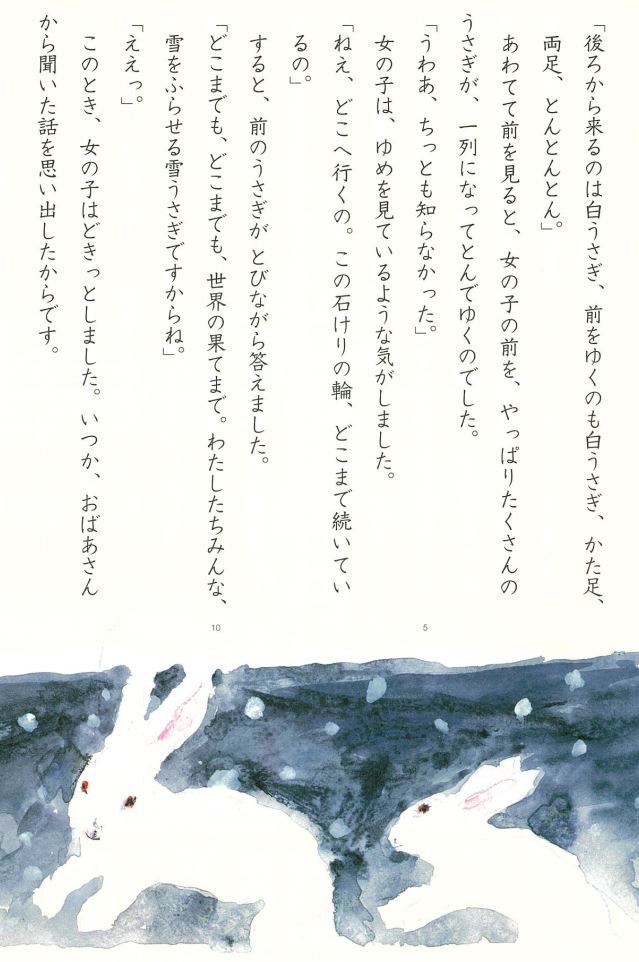 「後ろから来るのは白うさぎ、前をゆくのも白うさぎ、かた足、
両足、とんとんとん」。
あわてて前を見ると、女の子の前を、やっぱりたくさんの
うさぎが、一列になってとんでゆくのでした。
「うわあ、ちっとも知らなかった」。
女の子は、ゆめを見ているような気がしました。
「ねえ、どこへ行くの。この石けりの輪、どこまで続いてい
るの」。
すると、前のうさぎがとびながら答えました。
「どこまでも、どこまでも、世界の果てまで。わたしたちみんな、
雪をふらせる雪うさぎですからね」。
「ええっ」。
このとき、女の子はどきっとしました。いつか、おばあさん
から聞いた話を思い出したからです。
5
10